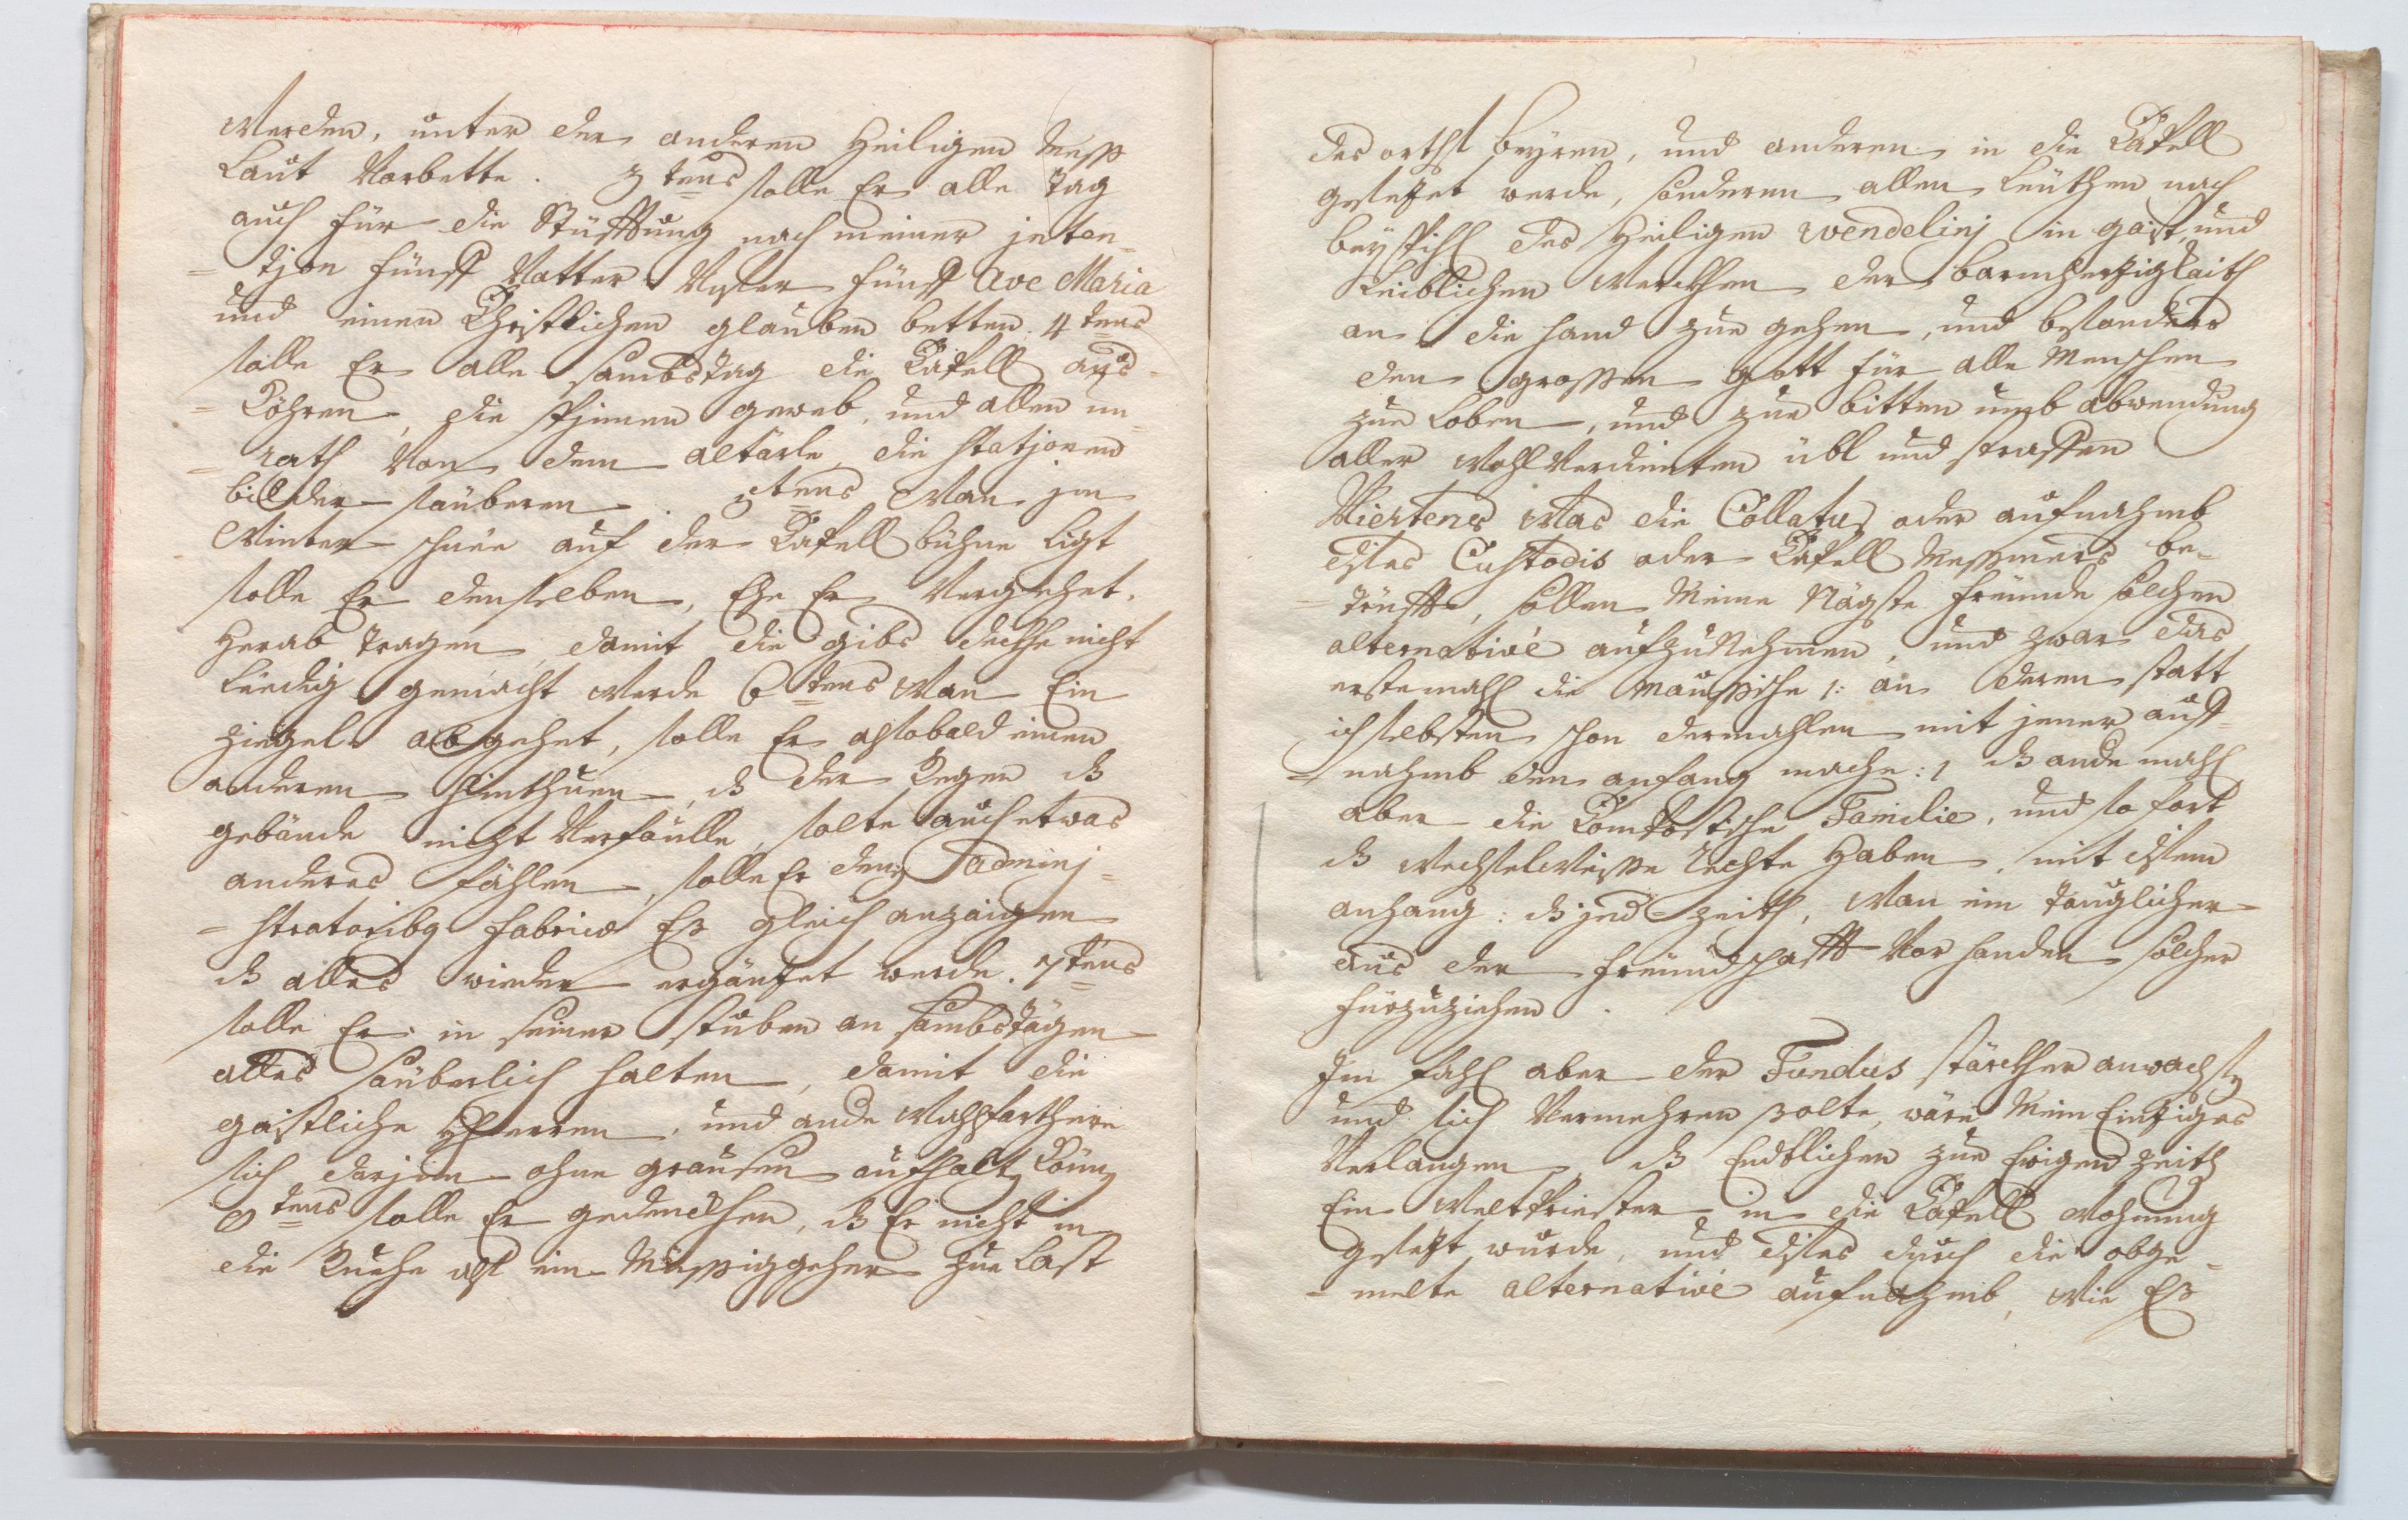 Werden, unter der anderen Heiligen Mess
Laut Vorbette. 3tens solle Er alle tag
auch für die Stüfftung nach meiner jnten=
=tjon fünff Vatter Unser fünff Ave Maria
und einen Christlichen glauben betten. 4tens
solle Er alle sambstag die Capell aus=
=köhren, die spinnen geweb, und allen un=
=rath von dem altärle, die Stationen
bilder säuberen. 5tens Wan jm
Winter schnee auf der Capell bühne ligt
solle Er denselben, Ehe Er Vergehet.
Herab tragen, damit die gibs deckhe nicht
Lüedig gemacht Werde 6tens Wan Ein
ziegel abgehet, solle Er alsobald einen
anderen hinthuen, dß der Regen dß
gebäude nicht Verfäulle, solte auch etwas
anderes fählen, solle Er den Adminj=
=stratoribus fabricæ Es gleich anzaigen
dß alles wieder ergäntzet werde. 7tens
solle Er in seiner stuben an sambstägen
alles säuberlich halten, damit die
gaistliche Herren, und ande Wahlfarthere
sich darjnn ohne grausen aufhalten könen
8tens solle Er gedenckhen, dß Er nicht in
die Ruehe alß ein Müessiggeher zue Last
des orths beyren, und anderen in die Capell
gesetzet werde, sonderen allen Leüthen nach
beyspihl des Heiligen Wendelinj in gaist, und
Leiblichen Werckhen der barmhertzigkaith
an die hand zue gehen, und besonders
den grossen gott für alle Menschen
zue Loben, und zue bitten umb abwendung
aller Wohl Verdienten übl und straffen
Viertens Was die Collatur oder aufnahmb
dises Custodis oder Capell Messmers be=
=trüfft, sollen Meine Nägste freünde solchen
alternativè aufzuNehmen, und zwar das
erste mahl die Maussische /: an deren statt
ich selbsten schon dermahlen mit jener auff=
=nahmb den anfang mache :/ dß ande mahl
aber die Familie, und so fort
dß Wechselweisse Rechte Haben, mit disem
anhang: dß jed=zeith, Wan ein tauglicher
aus der freündschafft Vorhanden solcher
fürzuziehen.
Im fahl aber der Fundus stärckher anwachsen
und sich Vermehren solte, wäre Mein Eintziges
Verlangen, dß Endtlichen zue Ewigen zeith
Ein Weltpriester in die Capell Wohnung
gesetzt wurde, und dises durch die obge=
=melte alternativè aufnahmb, Wie Es